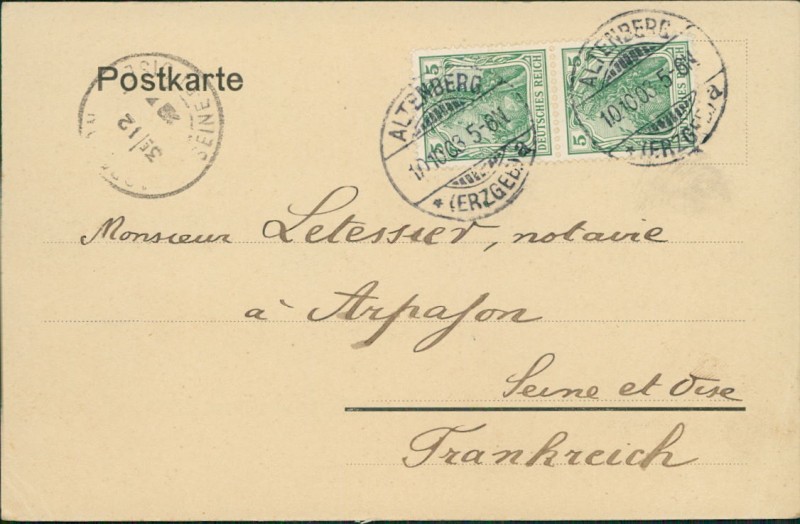 Postkarte
5
DEUTSCHES REICH
5
ALTENBERG
10.10.03 5-6N
* (ERZGEB.) a
ALTENBERG
10.10.03 5-6N
* (ERZGEB.) a
SEINE
3E/12
Monsieur Letessier, notaire
à Arpajon
Seine et Oise
Frankreich